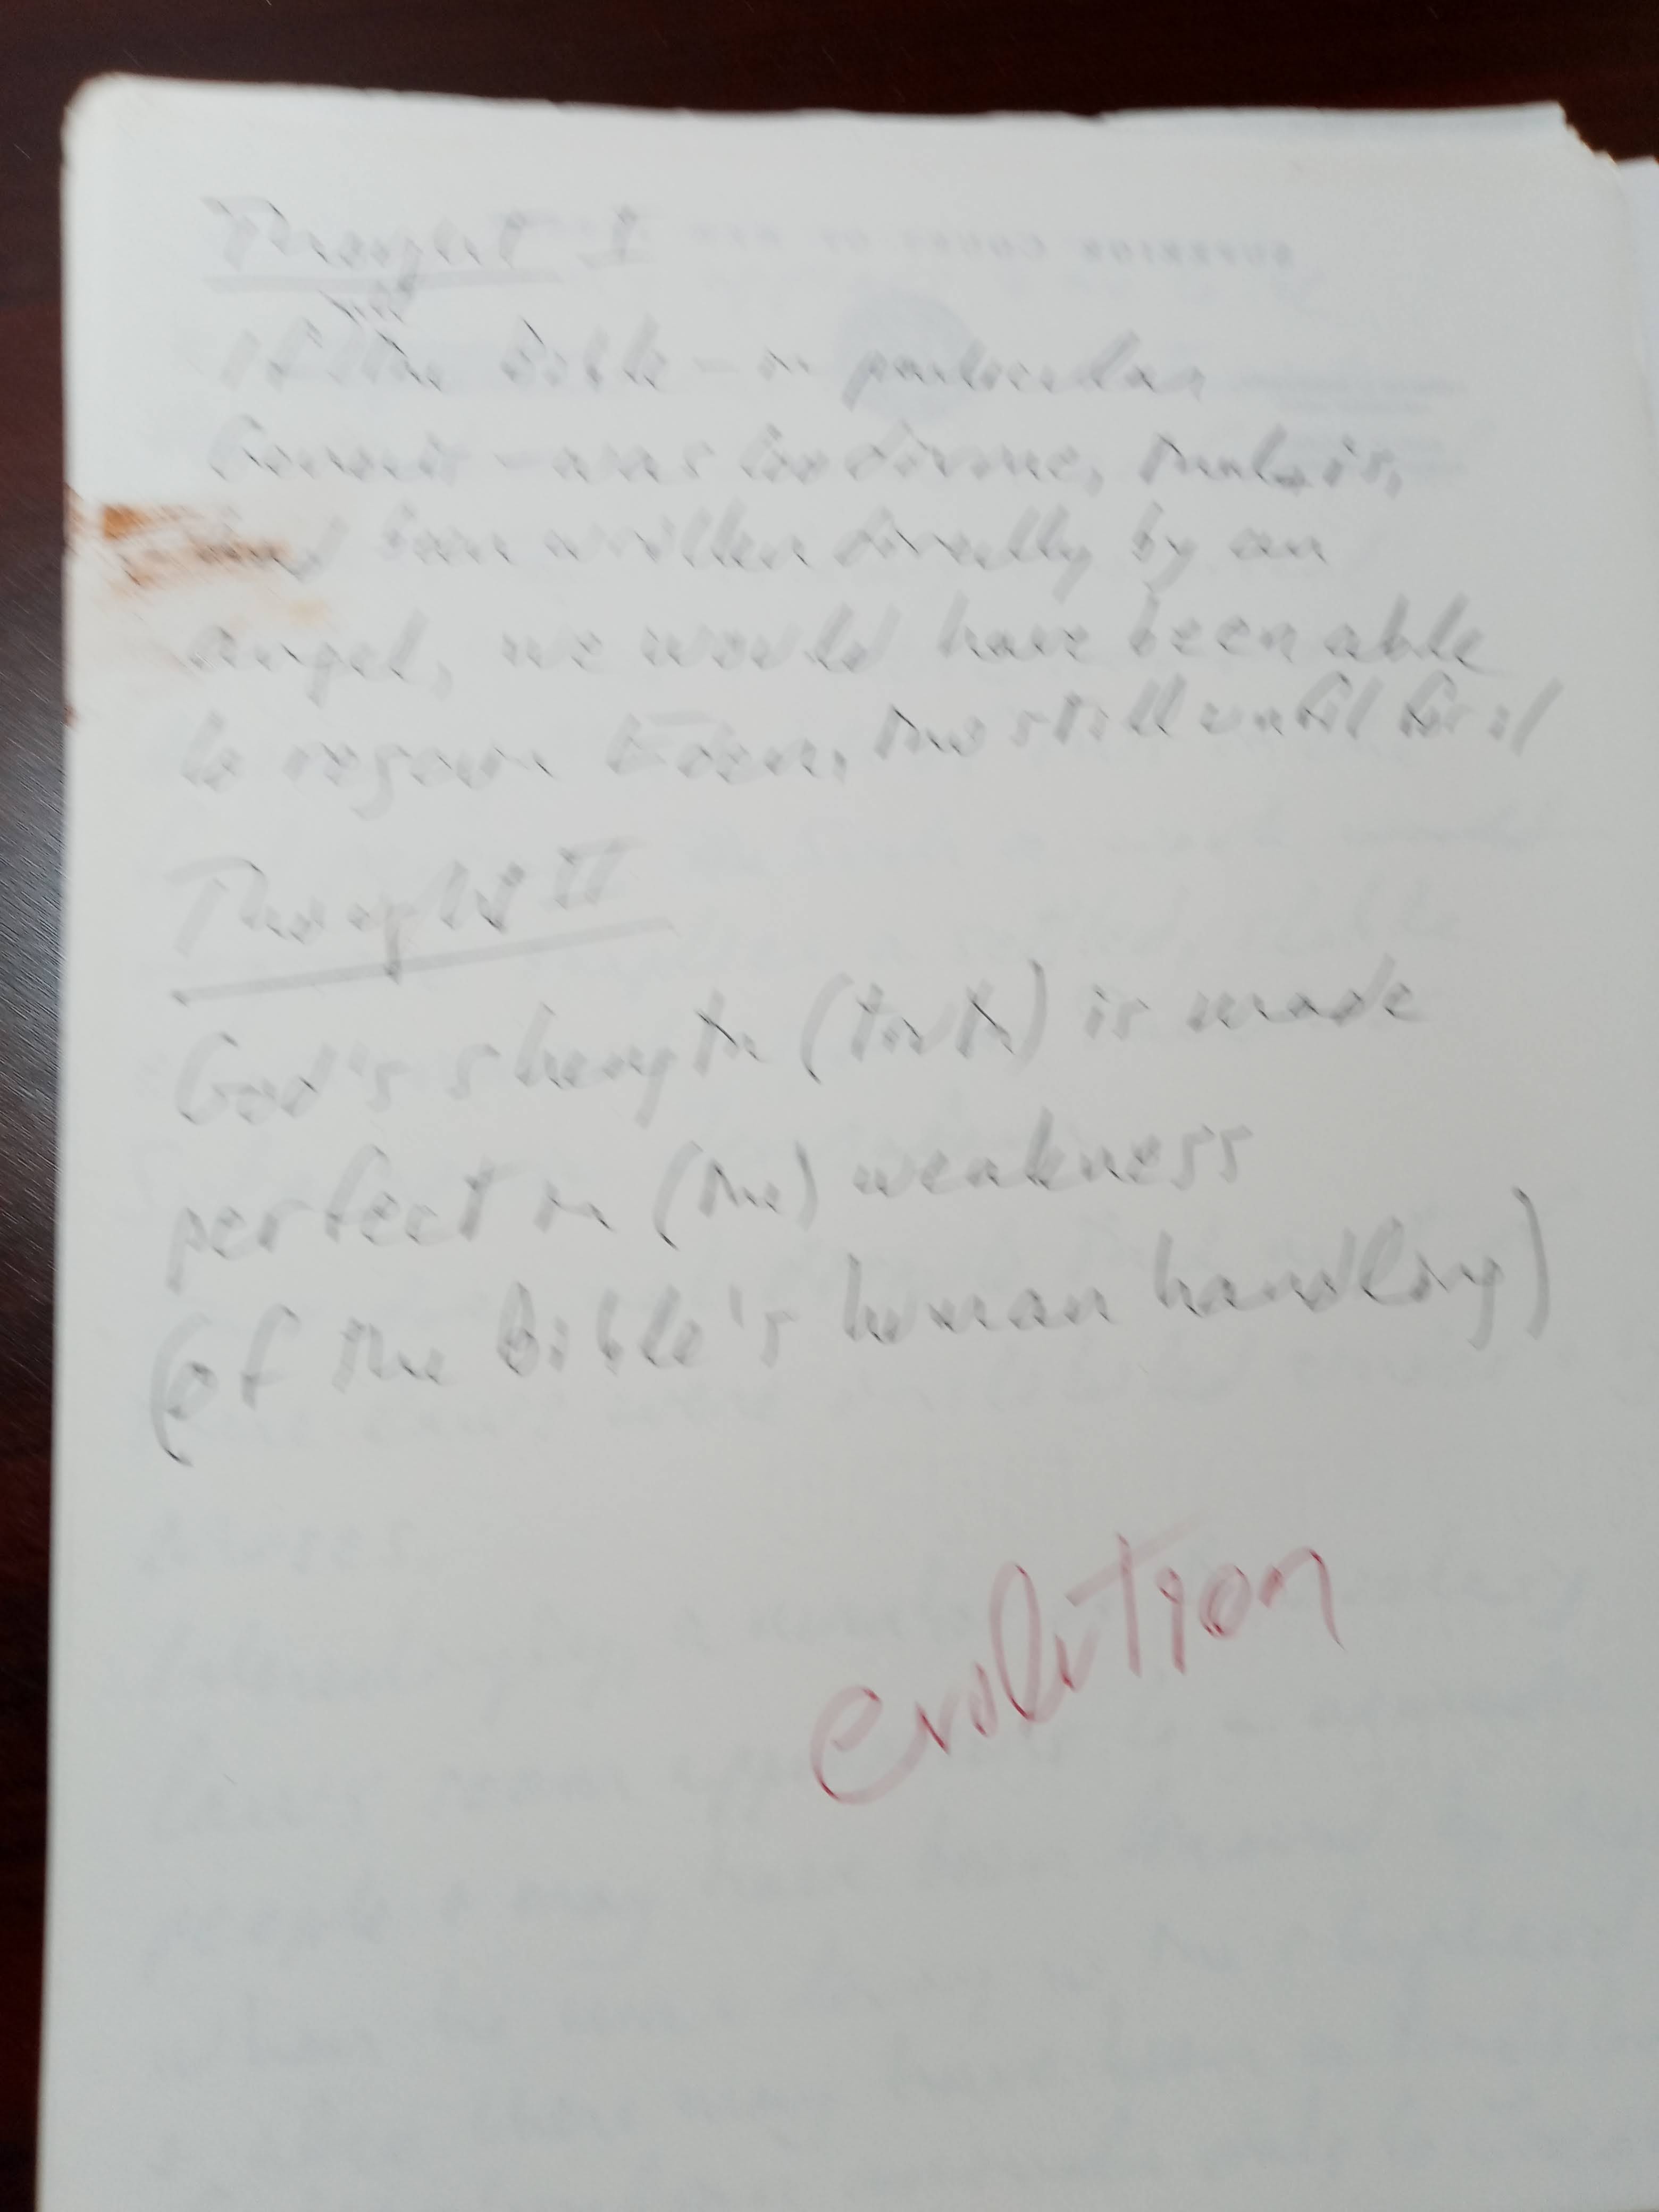 Thought I
If the Bible – in particular
Genesis – was too divine, that is,
had been written directly by an
angel, we would have been able
to regain Eden, tho still unfit for it
Thought II
God's strength (truth) is made
perfect in (the) weakness
(of the Bible's human handling)
evolution